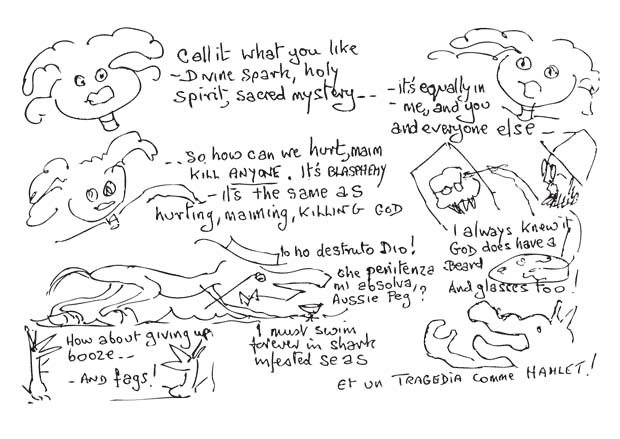 Call it what you like
- Divine spark, holy
spirit, sacred mystery - -
- it's equally in
- me, and you
and everyone else - -
- - So, how can we hurt, maim
KILL ANYONE. It's BLASPHEMY
- it's the same as
hurting, maiming, KILLING GOD
I always knew it
GOD does have a
Beard
And glasses too!
Io ho destruto Dio!
che penitenza
mi absolva,
Aussie Peg?
How about giving up
booze - -
- AND fags!
I must swim
forever in shark
infested seas
et un TRAGEDIA COMME HAMLET!